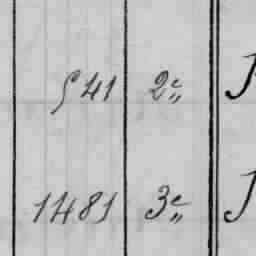 541 2e„
1481 3e„